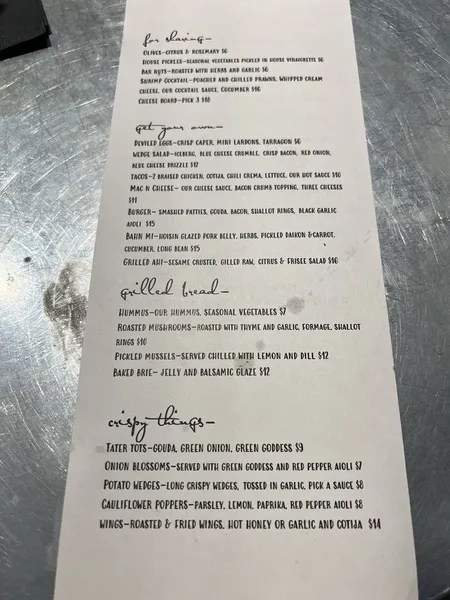 for sharing-
Olives-citrus & rosemary $6
House pickles-seasonal vegetables pickled in house vinaigrette $6
Bar nuts-roasted with herbs and garlic $6
Shrimp cocktail-poached and chilled prawns, whipped cream
cheese, our cocktail sauce, cucumber $16
Cheese board-pick 3 $18
get your own-
Deviled eggs-crisp caper, mini lardons, tarragon $6
Wedge salad-iceberg, blue cheese crumble, crisp bacon, red onion,
blue cheese drizzle $12
Tacos-2 braised chicken, cotija, chili crema, lettuce, our hot sauce $10
Mac n cheese- our cheese sauce, bacon crumb topping, three cheeses
$11
Burger- smashed patties, gouda, bacon, shallot rings, black garlic
aioli $15
Bahn mi-hoisin glazed pork belly, herbs, pickled daikon & carrot,
cucumber, long bean $15
Grilled ahi-sesame crusted, gilled raw, citrus & frisee salad $16
grilled bread-
Hummus-our hummus, seasonal vegetables $7
Roasted mushrooms-roasted with thyme and garlic, formage, shallot
rings $10
Pickled mussels-served chilled with lemon and dill $12
Baked brie- jelly and balsamic glaze $12
crispy things-
Tater tots-gouda, green onion, green goddess $9
Onion blossoms-served with green goddess and red pepper aioli $7
Potato wedges-long crispy wedges, tossed in garlic, pick a sauce $8
Cauliflower poppers-parsley, lemon, paprika, red pepper aioli $8
Wings-roasted & fried wings, hot honey or garlic and cotija $14